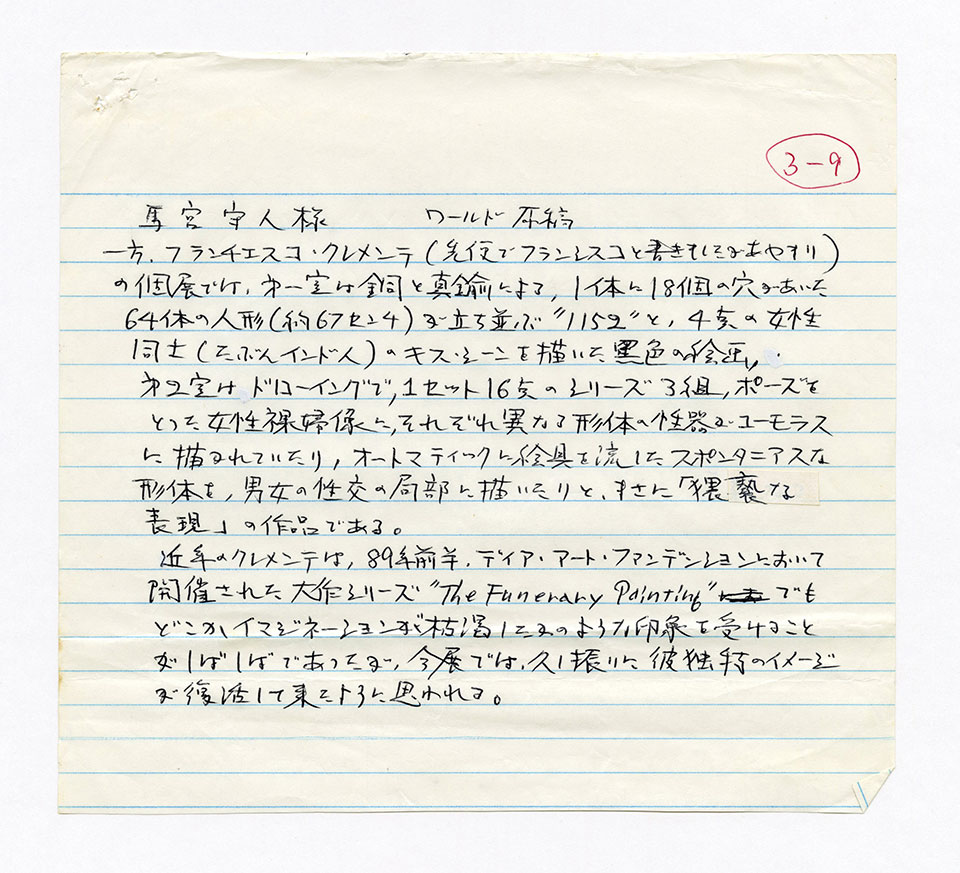 3-9
馬宮守人様 ワールド原稿
一方、フランチェスコ・クレメンテ(先便でフランシスコと書きましたがあやまり)
の個展では、第一室は銅と真鍮による、1体に18個の穴があいた
64体の人形(約67センチ)が立ち並ぶ"1152"と、4点の女性
同士(たぶんインド人)のキス・シーンを描いた黒色の絵画、
第2室は、ドローイングで、1セット16点のシリーズ3組、ポーズを
とった女性裸婦像に、それぞれ異なる形体の性器がユーモラス
に描かれていたり、オートマティックに絵具を流したスポンタニアスな
形体を、男女の性交の局部に描いたりと、まさに「猥褻な
表現」の作品である。
近年のクレメンテは、89年前半、ディア・アート・ファンデンションにおいて
開催された大作シリーズ"The Funerary Painting"でも
どこか、イマジネーションが枯渇したかのような印象を受けること
がしばしばであったが、今展では、久し振りに彼独特のイメージ
が復活して来たように思われる。